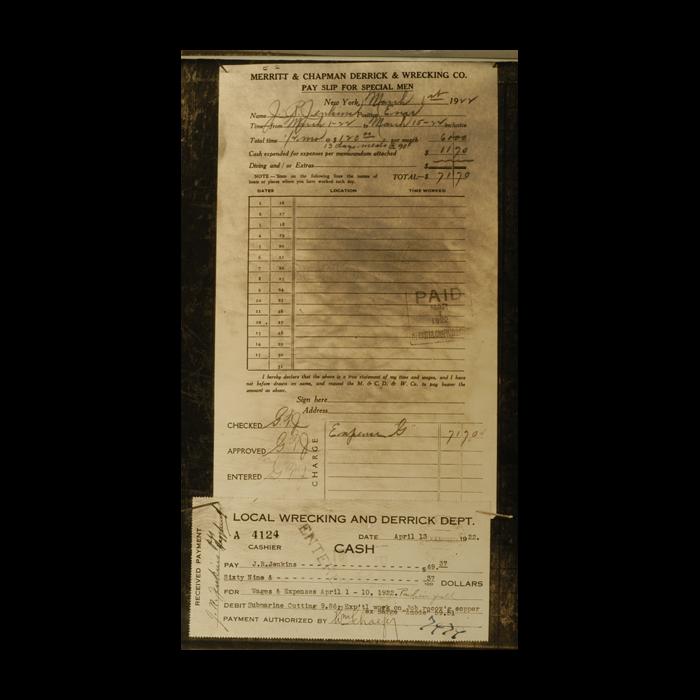 MERRITT & CHAPMAN DERRICK & WRECKING CO.
PAY SLIP FOR SPECIAL MEN
New York, March 1922
Name J. R. Jenkins
Time from March 1-22 to March 15-22 inclusive
Total time 1/2 mo @ $ 120.00 per month 60.00
13 days meals @ 90
Cash expended for expenses per memorandum attached $ 11 70
Diving and / or Extras $
NOTE—State on the following lines the names of boats or places where you have worked each day.
TOTAL—$ 71 70
DATES LOCATION TIME WORKED
1 16
2 17
3 18
4 19
5 20
6 21
7 22
8 23
9 24
10 25
PAID
1922
I hereby declare that the above is a true statement of my time and wages, and I have
not before drawn on same, and request the M. & C. D. & W. Co. to pay bearer the
amount as above.
Sign here
Address
CHECKED
APPROVED
ENTERED
CHARGE
Expense G 71 70
LOCAL WRECKING AND DERRICK DEPT.
A 4124 DATE April 13 1922.
CASHIER CASH
RECEIVED PAYMENT
ENTERED
PAY J.R.Jenkins $69.37
Sixty Nine & 37/100 DOLLARS
FOR Wages & Expenses April 1 - 10, 1922.
DEBIT Submarine Cutting 9.86; Exp'tl work on Job
PAYMENT AUTHORIZED BY